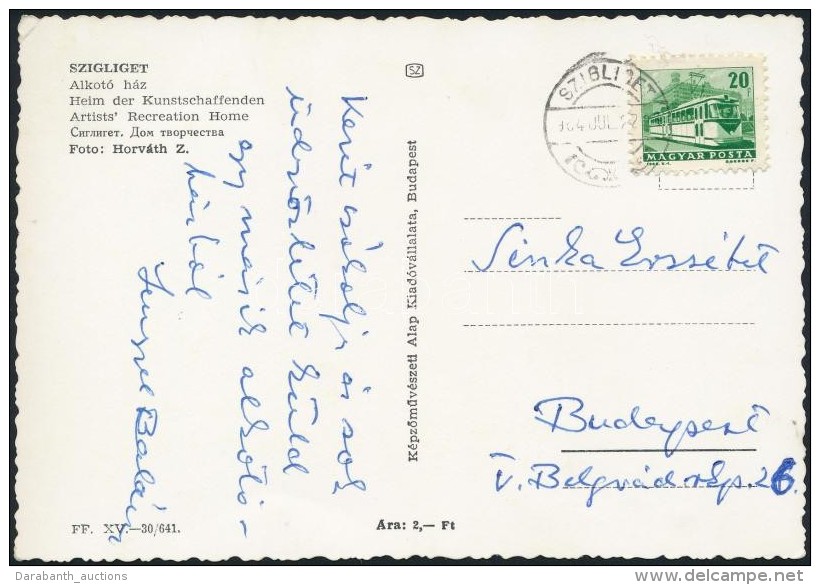 SZIGLIGET
Alkotó ház
Heim der Kunstschaffenden
Artists' Recreation Home
Сиглигет. Дом творчества
Foto: Horváth Z.
Kezét csókolja és sok
üdvözletet küld
egy másik alkotó-
házból
Lengyel Balázs
FF. XV.—30/641.
Ára: 2,— Ft
Képzőművészeti Alap Kiadóvállalata, Budapest
SZ
SZIGLIGET
964 JUL
20
MAGYAR POSTA
Sinka Erzsébet
Budapest
V. Belgrád rkp. 26.
Darabanth_auctions
delcampe.net